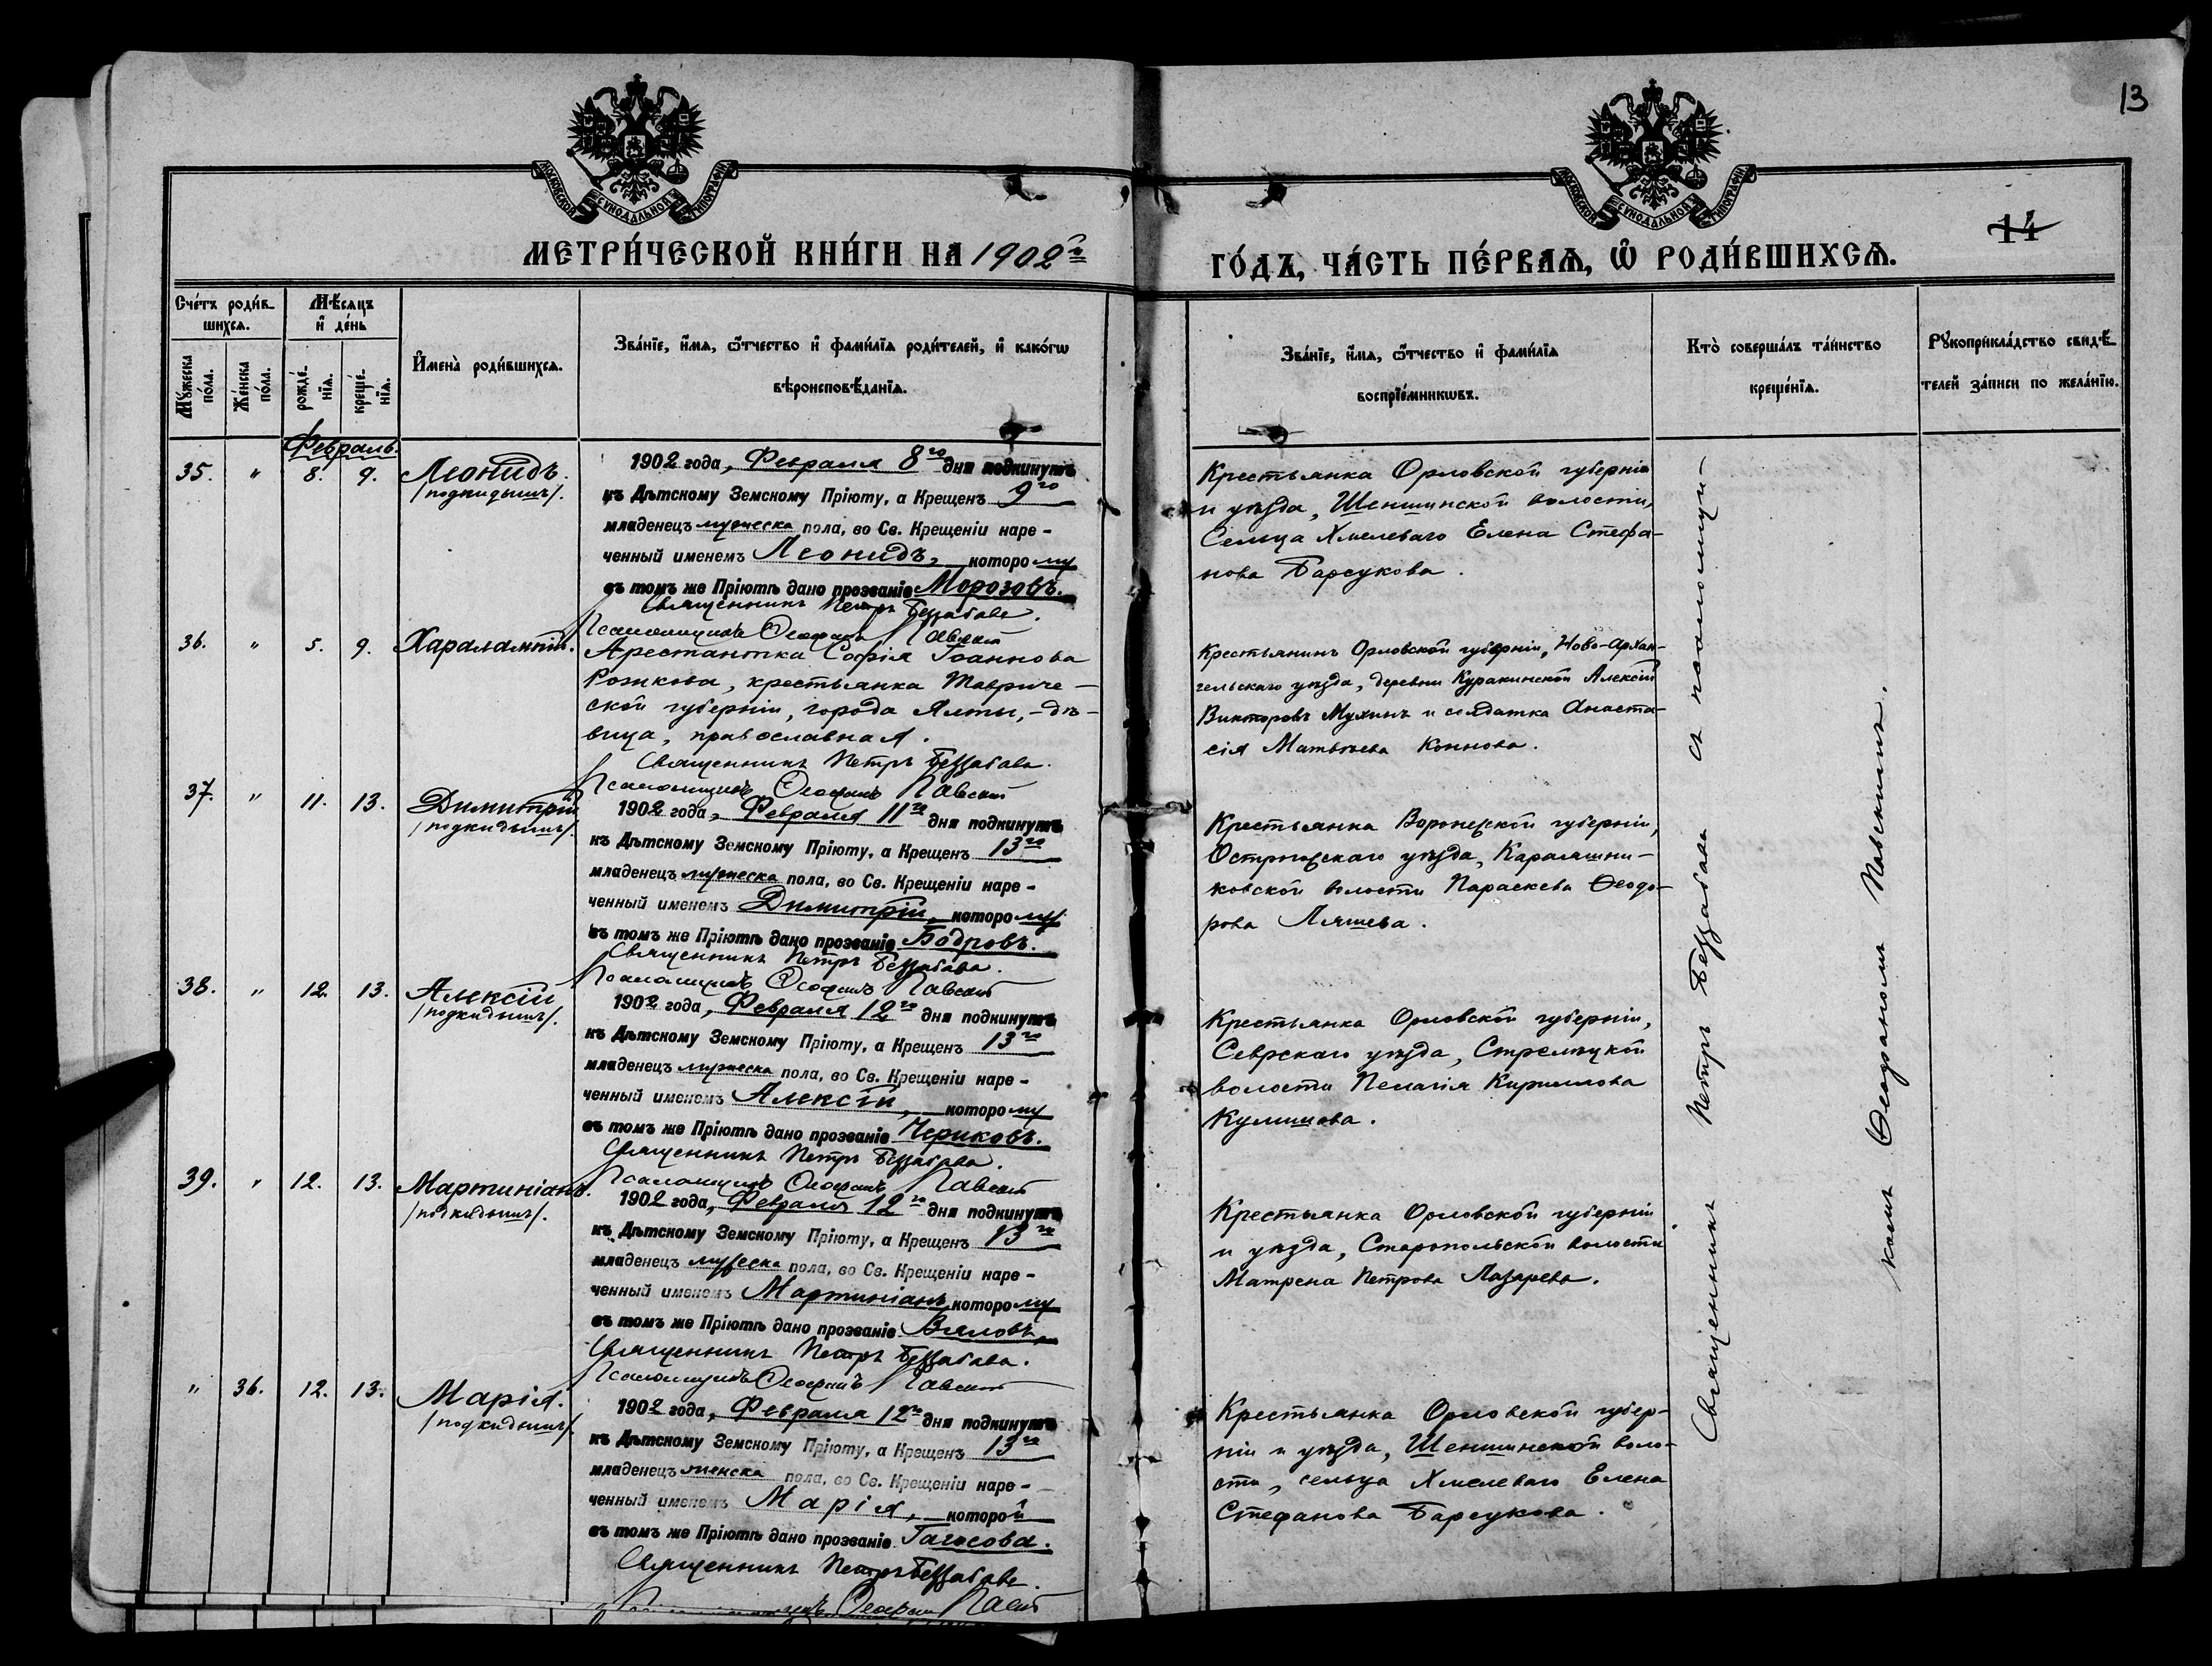 13
МОСКОВСКОЙ СУНОДАЛЬНОЙ ТИПОГРАФІИ
МОСКОВСКОЙ СУНОДАЛЬНОЙ ТИПОГРАФІИ
14
МЕТРИ́ЧЕСКОЙ КНИ́ГИ НА 1902й
ГО́ДЪ, ЧА́СТЬ ПЕ́РВАѦ, Ѡ҆ РОДИ́ВШИХСѦ.
Сче́тъ роди́в-
шихсѧ.
Мꙋжеска по́ла.
Же́нска по́ла.
Мѣ́сѧцъ
и҆ де́нь
рожде́-
нїѧ.
креще́-
нїѧ.
И҆мена̀ роди́вшихсѧ.
Зва́нїе, и҆́мѧ, ѻ҆́тчество и҆ фами́лїѧ роди́телей, и҆ како́гѡ
вѣроисповѣ́данїѧ.
Зва́нїе, и҆́мѧ, ѻ҆́тчество и҆ фами́лїѧ
воспрїе́мникѡвъ.
Кто̀ соверша́лъ та́инство
креще́нїѧ.
Рꙋкоприкла́дство свидѣ́-
телей за́писи по жела́нїю.
Февраль.
35. " 8. 9. Леонидъ.
/подкидышъ/.
1902 года, Февраля 8го дня подкинутъ
къ Дѣтскому Земскому Пріюту, а Крещенъ 9го
младенецъ мужеска пола, во Св. Крещеніи наре-
ченный именемъ Леонидъ, которому
въ томъ же Пріютѣ дано прозваніе Морозовъ.
Священникъ Петръ Беззабава.
Псаломщикъ Ѳеофанъ Павскій
Крестьянка Орловской губерніи
и уѣзда, Шеншинской волости,
Сельца Хмелеваго Елена Стефа-
нова Барсукова.
36. " 5. 9. Харалампій.
Арестантка Софія Іоаннова
Рожкова, крестьянка Тавриче-
ской губерніи, города Ялты, - дѣ-
вица, православная.
Священникъ Петръ Беззабава.
Псаломщикъ Ѳеофанъ Павскій
Крестьянинъ Орловской губерніи, Ново-Архан-
гельскаго уѣзда, деревни Куракинской Алексій
Викторовъ Мухинъ и солдатка Анаста-
сія Матвѣева Коннова.
37. " 11. 13. Димитрій
/подкидышъ/.
1902 года, Февраля 11го дня подкинутъ
къ Дѣтскому Земскому Пріюту, а Крещенъ 13го
младенецъ мужеска пола, во Св. Крещеніи наре-
ченный именемъ Димитрій, которому
въ томъ же Пріютѣ дано прозваніе Бодровъ.
Священникъ Петръ Беззабава.
Псаломщикъ Ѳеофанъ Павскій
Крестьянка Воронежской губерніи,
Острожскаго уѣзда, Караяшни-
ковской волости Параскева Ѳеодо-
рова Ляшева.
38. " 12. 13. Алексій
/подкидышъ/.
1902 года, Февраля 12го дня подкинутъ
къ Дѣтскому Земскому Пріюту, а Крещенъ 13го
младенецъ мужеска пола, во Св. Крещеніи наре-
ченный именемъ Алексій, которому
въ томъ же Пріютѣ дано прозваніе Чериковъ.
Священникъ Петръ Беззабава.
Псаломщикъ Ѳеофанъ Павскій
Крестьянка Орловской губерніи,
Севрскаго уѣзда, Стрелецкой
волости Пелагія Кириллова
Кулишова.
39. " 12. 13. Мартиніанъ.
/подкидышъ/.
1902 года, Февраля 12го дня подкинутъ
къ Дѣтскому Земскому Пріюту, а Крещенъ 13го
младенецъ мужеска пола, во Св. Крещеніи наре-
ченный именемъ Мартиніанъ, которому
въ томъ же Пріютѣ дано прозваніе Вяловъ.
Священникъ Петръ Беззабава.
Псаломщикъ Ѳеофанъ Павскій
Крестьянка Орловской губерніи
и уѣзда, Старопольской волости
Матрена Петрова Лазарева.
" 36. 12. 13. Марія.
/подкидышъ/.
1902 года, Февраля 12го дня подкинутъ
къ Дѣтскому Земскому Пріюту, а Крещенъ 13го
младенецъ женска пола, во Св. Крещеніи наре-
ченный именемъ Марія, которой
въ томъ же Пріютѣ дано прозваніе Гагосова.
Священникъ Петръ Беззабава.
Ѳеофанъ
Крестьянка Орловской губер-
ніи и уѣзда, Шеншинской воло-
сти, сельца Хмелеваго Елена
Стефанова Барсукова.
Священникъ Петръ Беззабава съ псаломщи-
комъ Ѳеофаномъ Павскимъ.